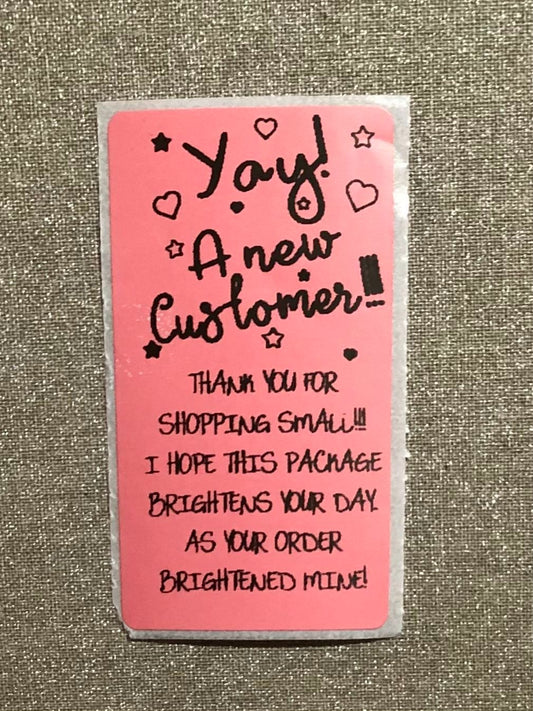 Yay!
A new
Customer!!!
THANK YOU FOR
SHOPPING SMALL!!!
I HOPE THIS PACKAGE
BRIGHTENS YOUR DAY.
AS YOUR ORDER
BRIGHTENED MINE!